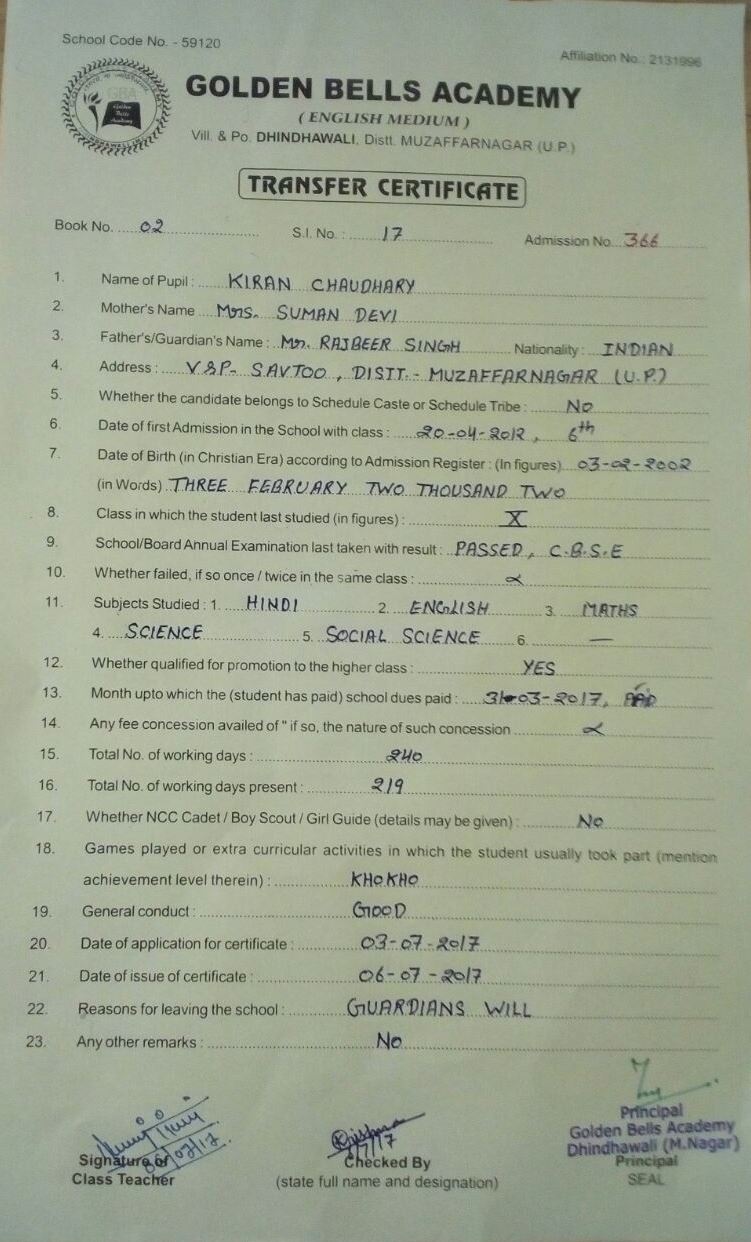 School Code No. - 59120
Affiliation No.: 2131996
GBA
Golden Bells Academy
GOLDEN BELLS ACADEMY
( ENGLISH MEDIUM )
Vill. & Po. DHINDHAWALI, Distt. MUZAFFARNAGAR (U.P.)
TRANSFER CERTIFICATE
Book No. 02 S.I. No. : 17 Admission No. 366
1. Name of Pupil : KIRAN CHAUDHARY
2. Mother's Name Mrs. SUMAN DEVI
3. Father's/Guardian's Name : Mr. RAJBEER SINGH Nationality : INDIAN
4. Address : V&P- SAVTOO, DISTT.- MUZAFFARNAGAR (U.P.)
5. Whether the candidate belongs to Schedule Caste or Schedule Tribe : No
6. Date of first Admission in the School with class : 20-04-2012, 6th
7. Date of Birth (in Christian Era) according to Admission Register : (In figures) 03-02-2002
(in Words) THREE FEBRUARY TWO THOUSAND TWO
8. Class in which the student last studied (in figures) : X
9. School/Board Annual Examination last taken with result : PASSED, C.B.S.E
10. Whether failed, if so once / twice in the same class :
11. Subjects Studied : 1. HINDI 2. ENGLISH 3. MATHS
4. SCIENCE 5. SOCIAL SCIENCE 6. —
12. Whether qualified for promotion to the higher class : YES
13. Month upto which the (student has paid) school dues paid : 31-03-2017,
14. Any fee concession availed of " if so, the nature of such concession
15. Total No. of working days : 240
16. Total No. of working days present : 219
17. Whether NCC Cadet / Boy Scout / Girl Guide (details may be given) : No
18. Games played or extra curricular activities in which the student usually took part (mention
achievement level therein) : KHO KHO
19. General conduct : GOOD
20. Date of application for certificate : 03-07-2017
21. Date of issue of certificate : 06-07-2017
22. Reasons for leaving the school : GUARDIANS WILL
23. Any other remarks : No
Principal
Golden Bells Academy
Dhindhawali (M.Nagar)
Signature of
Class Teacher
Checked By
(state full name and designation)
Principal
SEAL